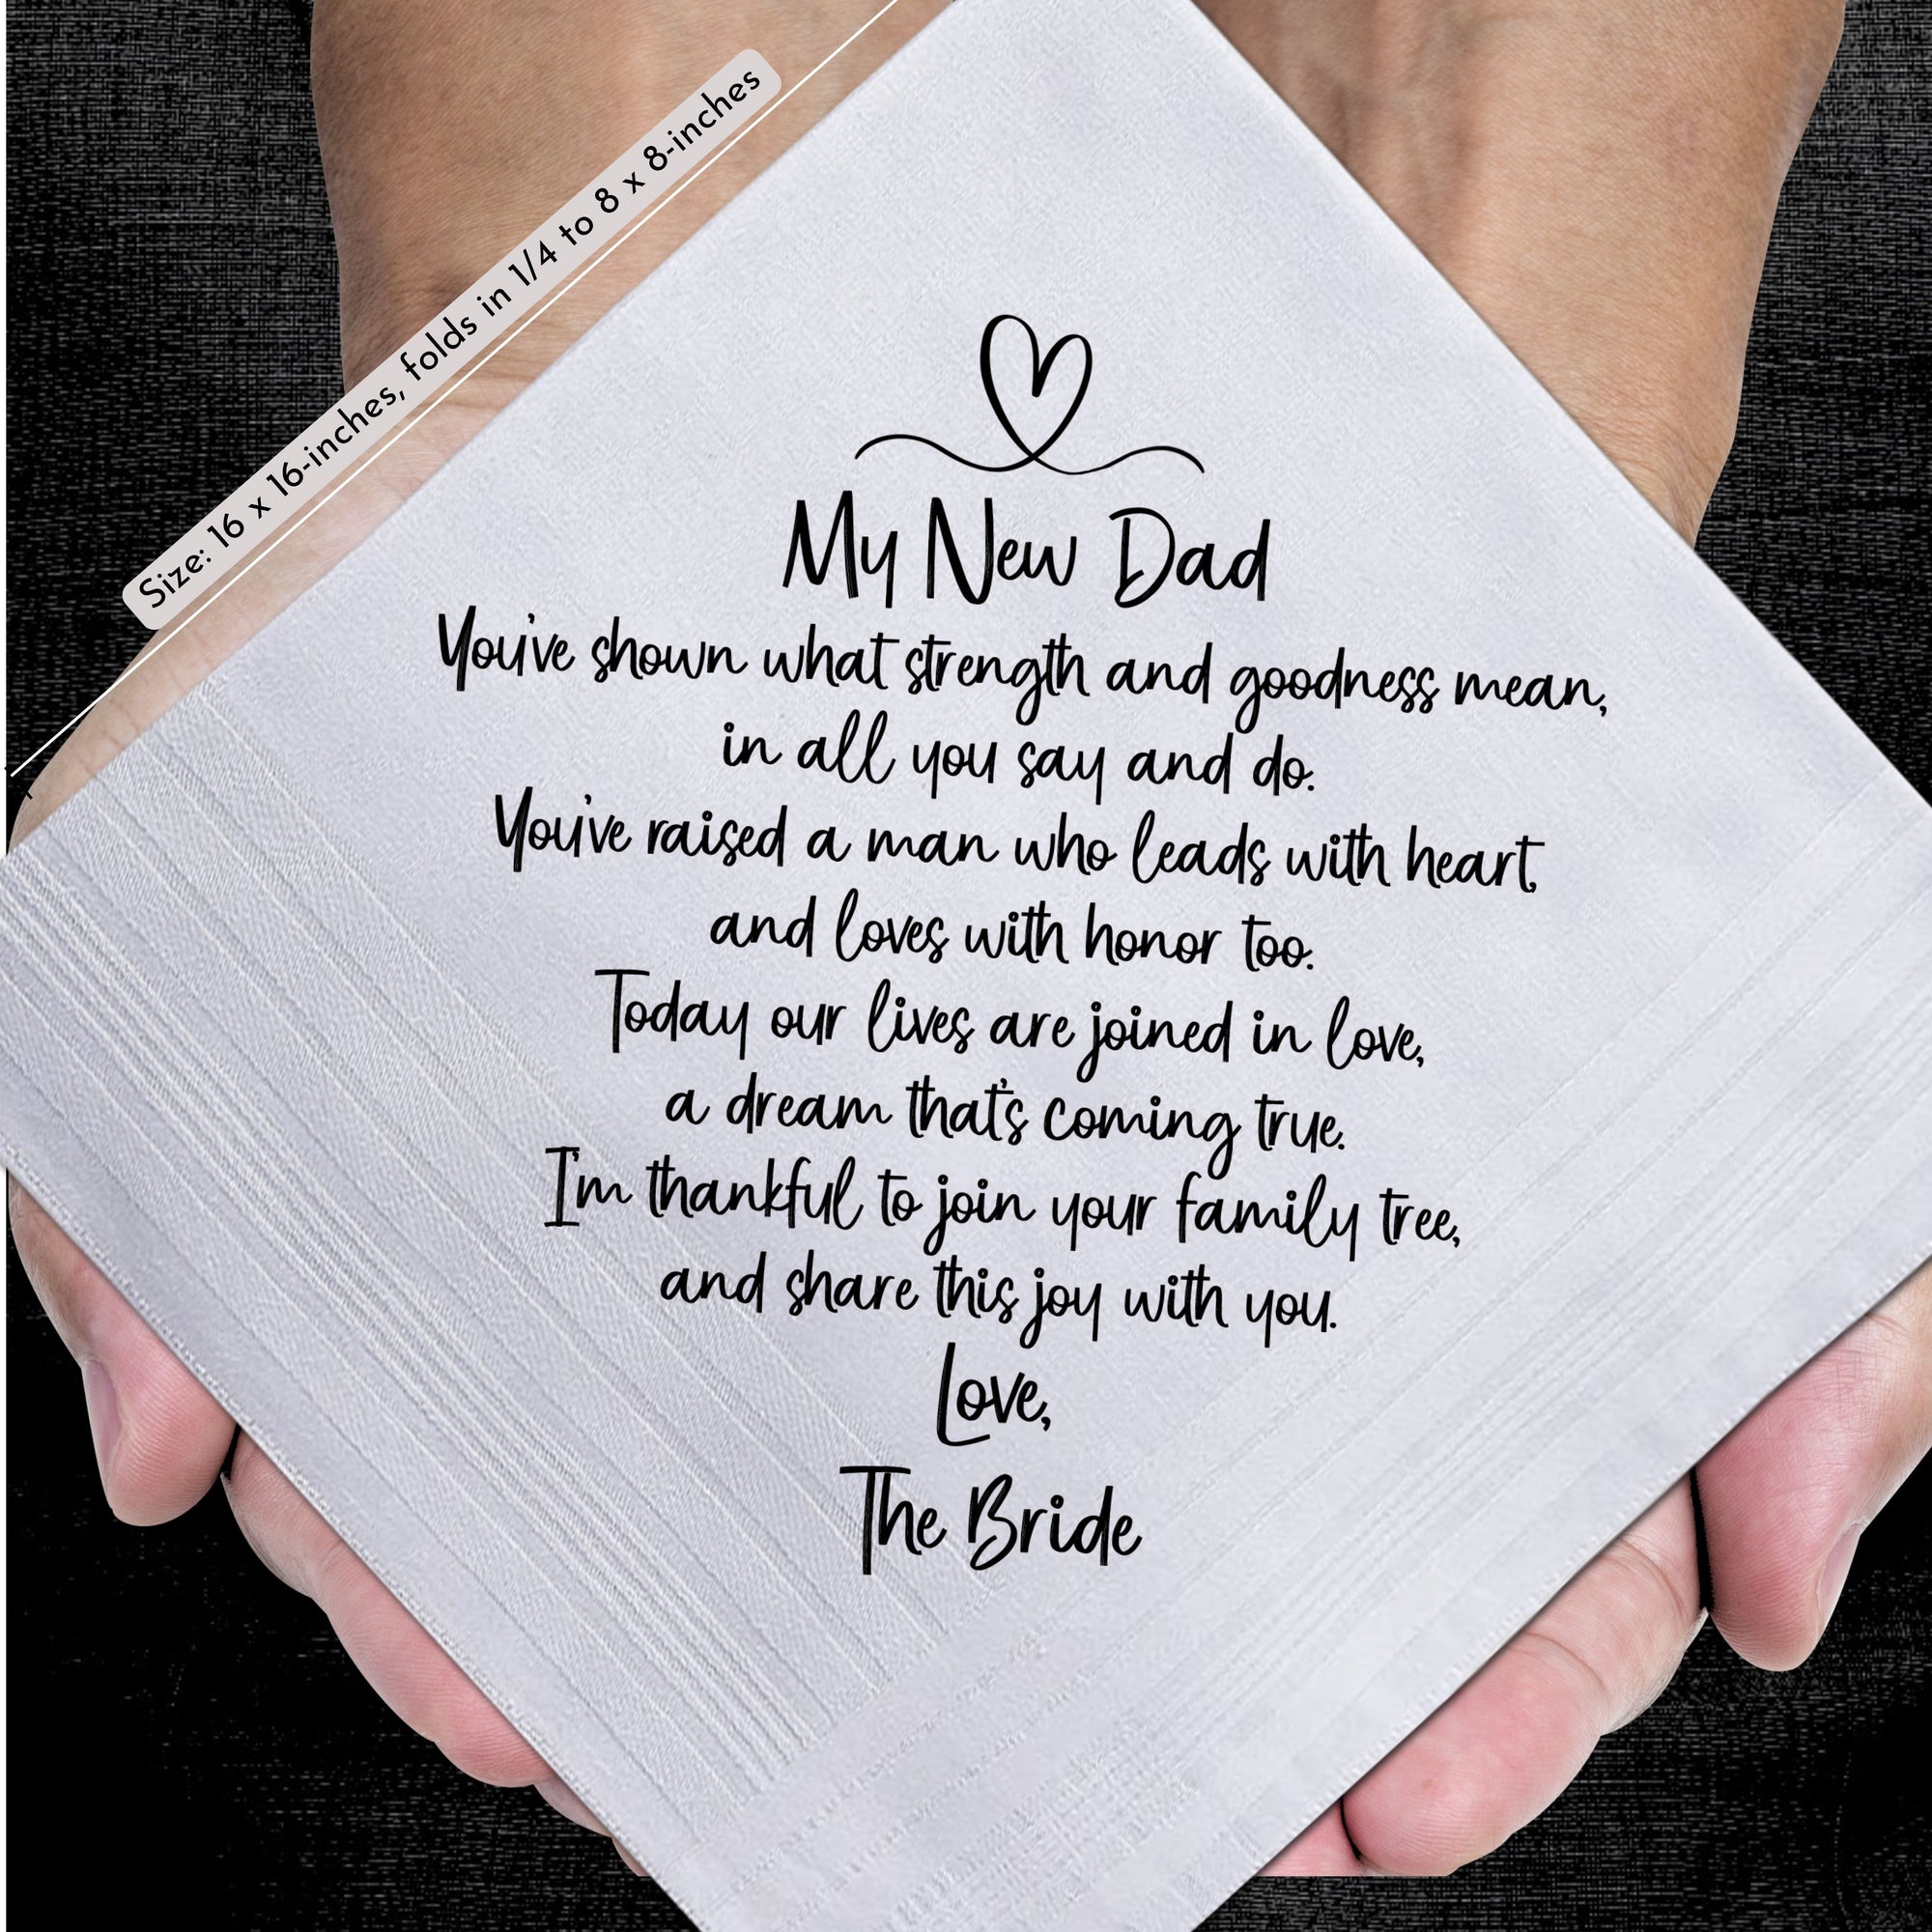 Size: 16 x 16-inches, folds in 1/4 to 8 x 8-inches
My New Dad
You've shown what strength and goodness mean,
in all you say and do.
You've raised a man who leads with heart,
and loves with honor too.
Today our lives are joined in love,
a dream that's coming true.
I'm thankful to join your family tree,
and share this joy with you.
Love,
The Bride